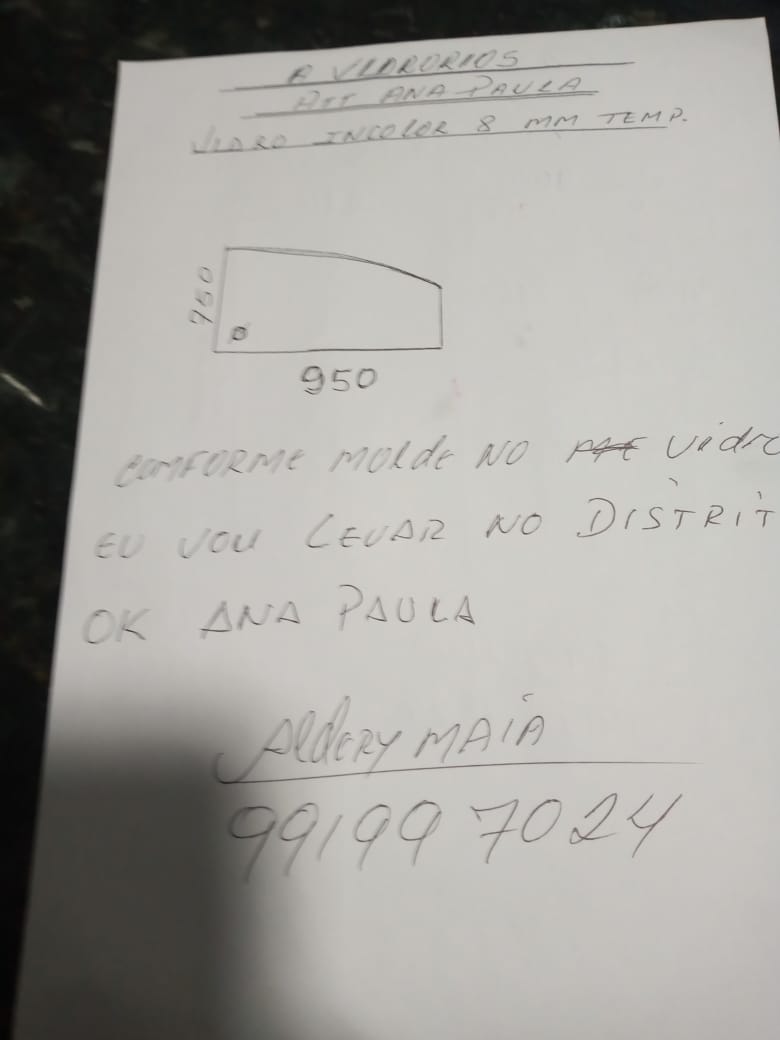 A VIDRORIOS
ATT ANA PAULA
VIDRO INCOLOR 8 MM TEMP.
750
950
CONFORME MOLDE NO vidro
EU VOU LEVAR NO DISTRIT
OK ANA PAULA
Aldery MAIA
99199 7024